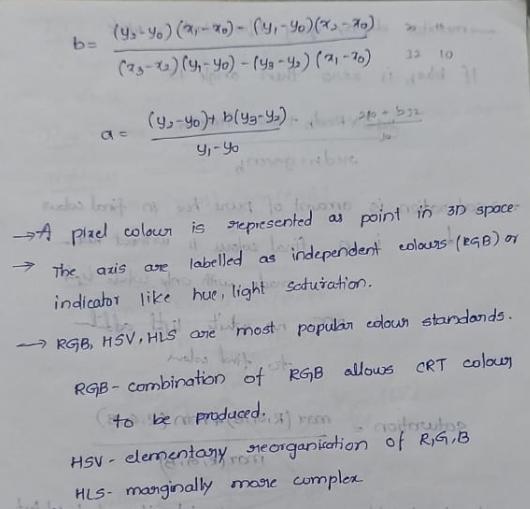 b= (y₂-y₀)(x₁-x₀) - (y₁-y₀)(x₂-x₀)
(x₃-x₂)(y₁-y₀) - (y₃-y₂)(x₁-x₀)
32 10
a = (y₂-y₀)+ b(y₃-y₂)
y₁-y₀
→ A pixel colour is represented as point in 3D space.
→ The axis are labelled as independent colours (RGB) or
indicator like hue, light saturation.
→ RGB, HSV, HLS are most popular colour standards.
RGB - combination of RGB allows CRT colour
to be produced.
HSV - elementary reorganisation of R,G,B
HLS- marginally more complex